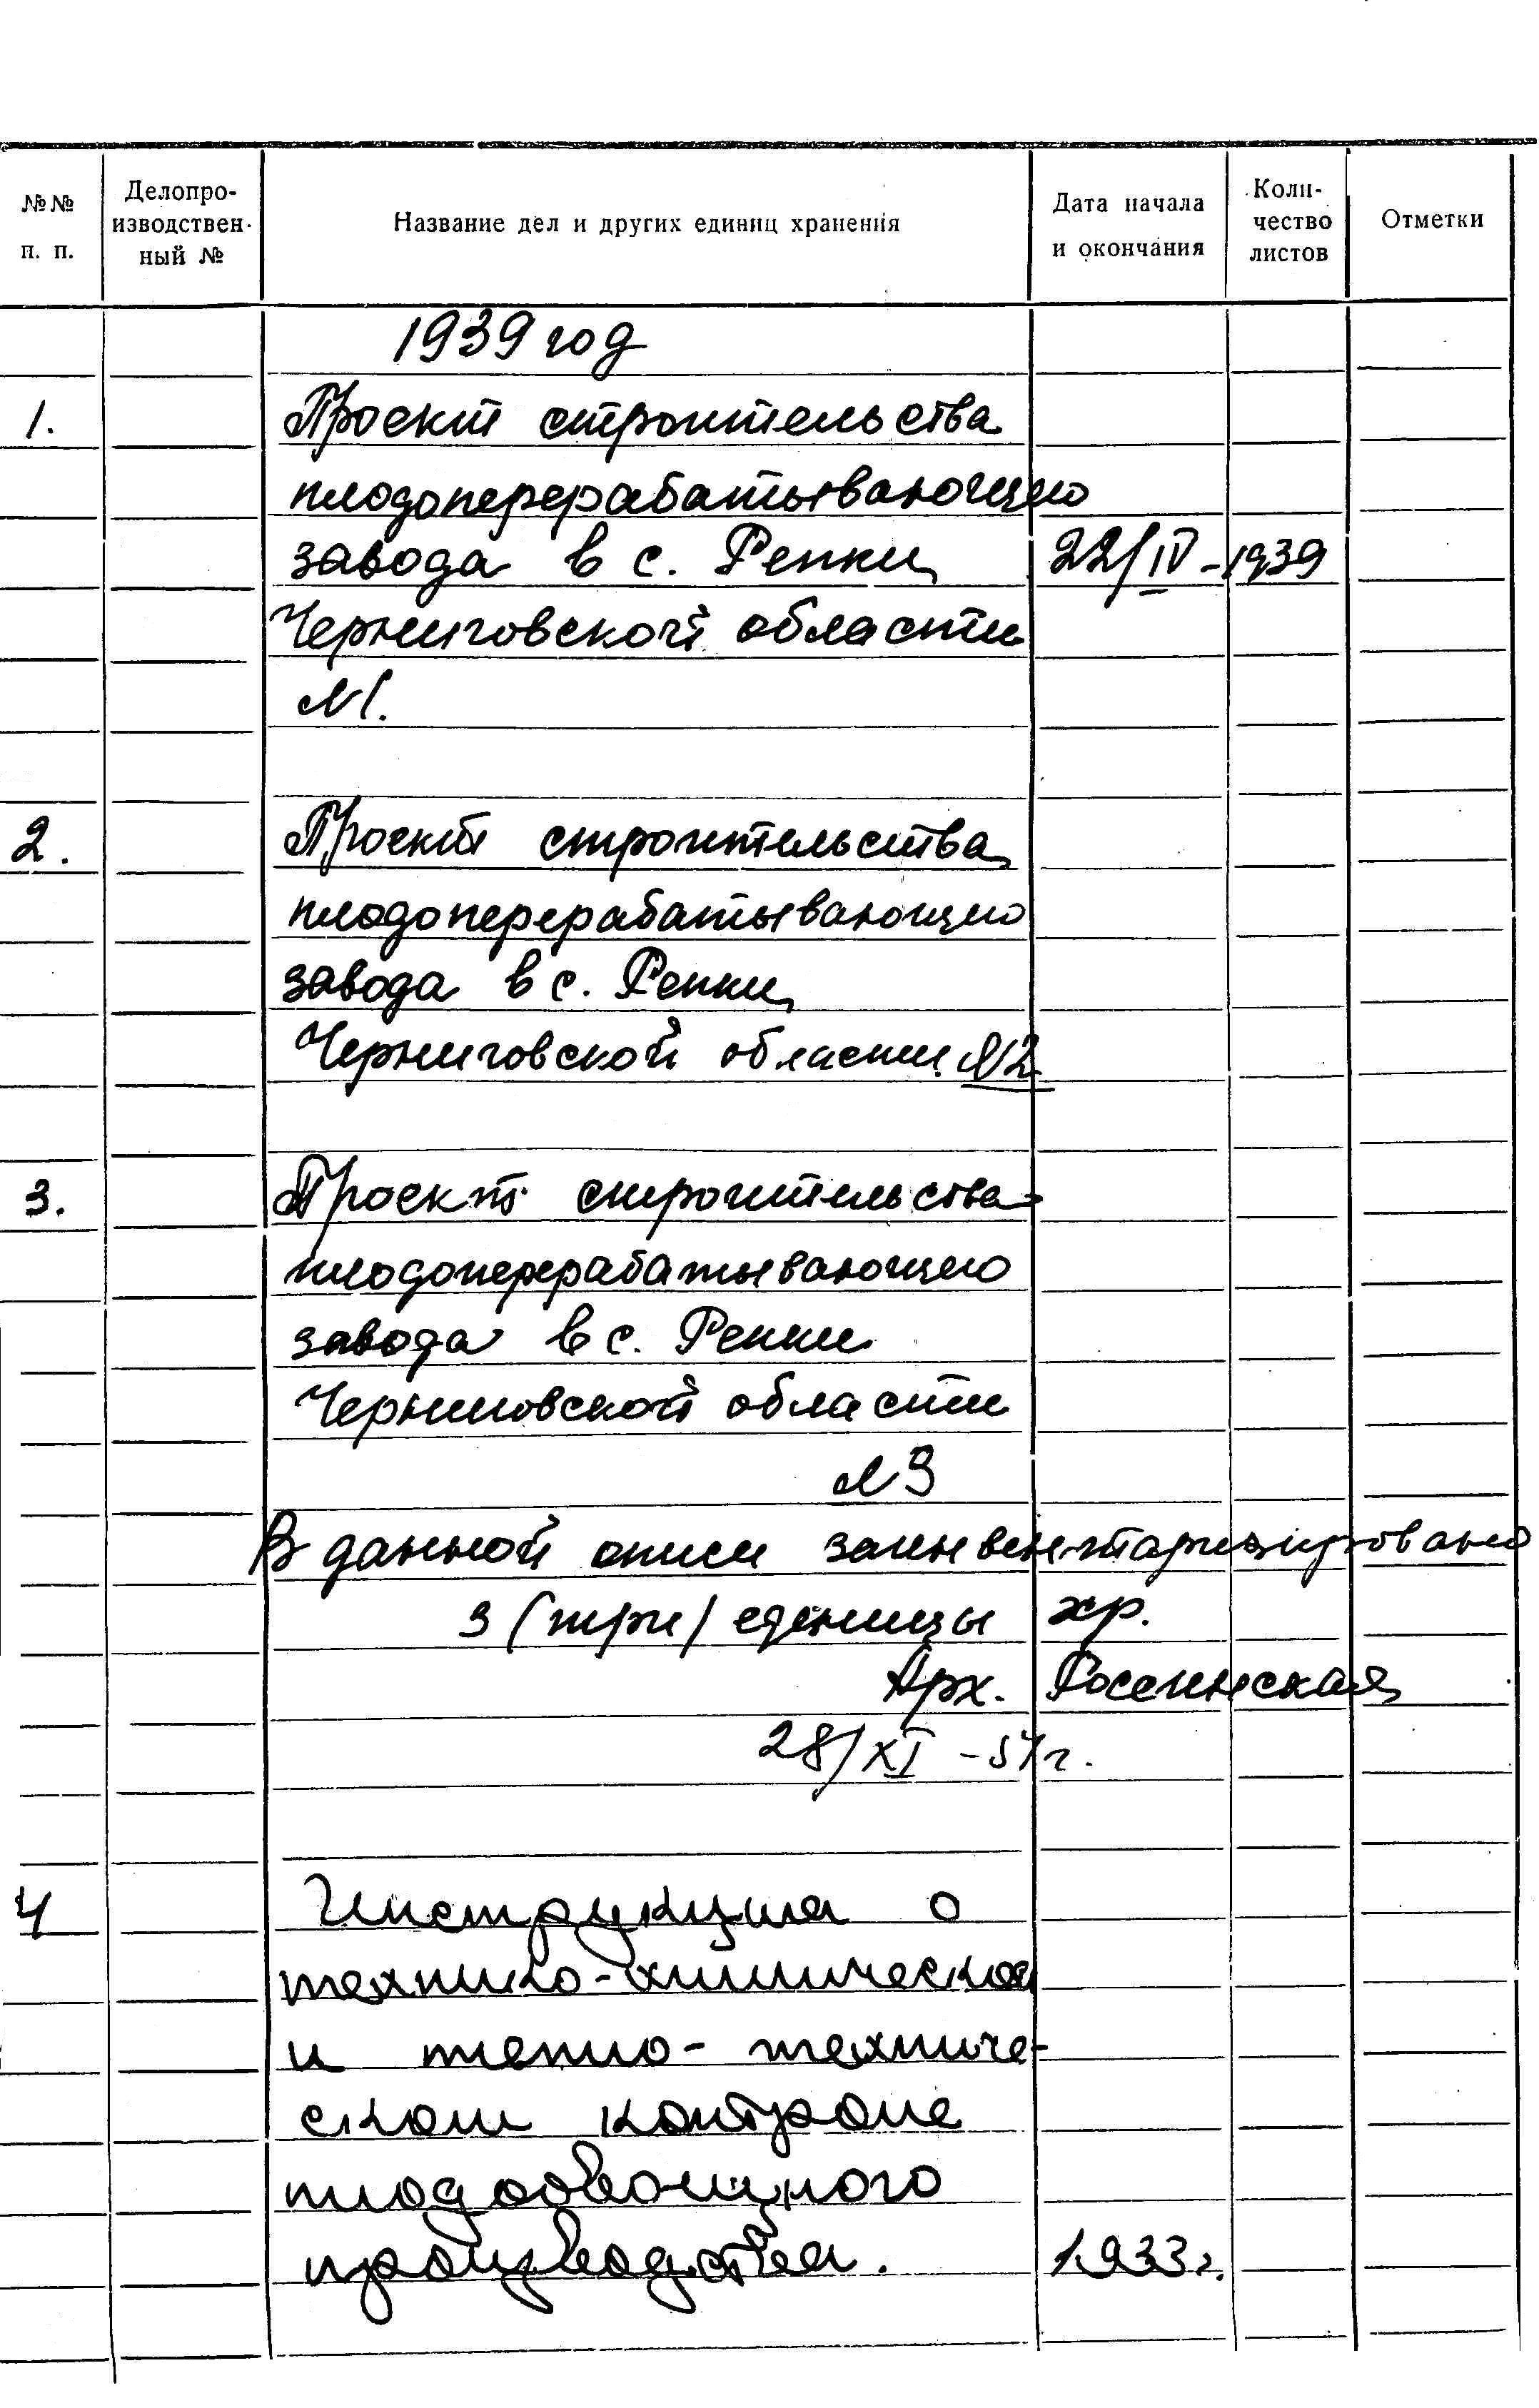 №№ п. п.
Делопро-
изводствен-
ный №
Название дел и других единиц хранения
Дата начала
и окончания
Коли-
чество
листов
Отметки
1939 год
1. Проект строительства
плодоперерабатывающего
завода в с. Репки 22/IV-1939
Черниговской области
№1.
2. Проект строительства
плодоперерабатывающего
завода в с. Репки
Черниговской области №2
3. Проект строительства
плодоперерабатывающего
завода в с. Репки
Черниговской области
№3
В данной описи заинвентаризировано
3 (три) единицы хр.
Арх.
28/XI -57г.
4 Инструкция о
технико-химическом
и тепло-техниче-
ском контроле
плодоовощного
производства. 1933г.